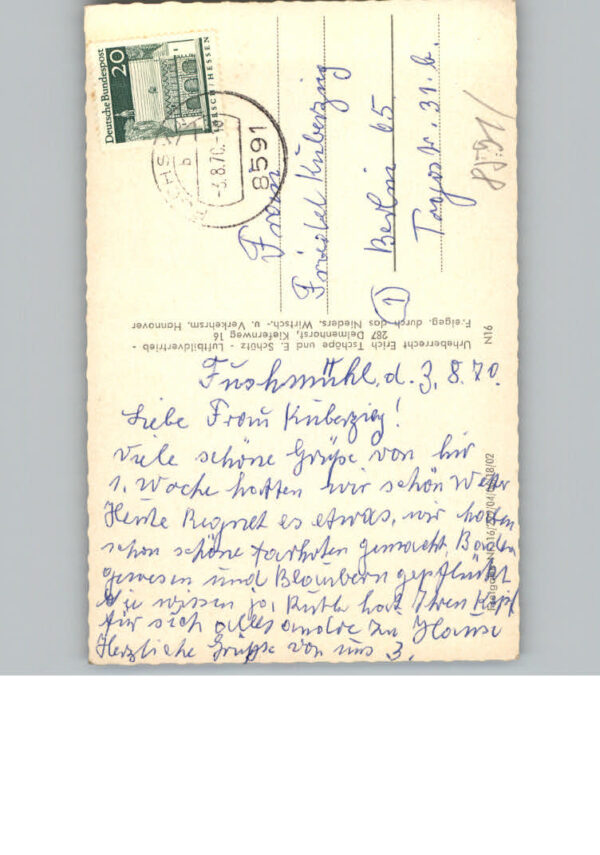 Deutsche Bundespost
20
LORSCH/HESSEN
-3.8.70.-
b
8591
8591/
Frau
Friedel Kuberzig
1 Berlin 65.
31. b.
Urheberrecht Erich Tschöpe und E. Schütz - Luftbildvertrieb -
287 Delmenhorst, Kiefernweg 16
Freigeg. durch das Nieders. Wirtsch.- u. Verkehrsm. Hannover
N16
Fuchsmühl, d. 3. 8. 70.
Liebe Frau Kuberzig!
Viele schöne Grüße von hir
1. Woche hatten wir schön Wetter
Heute Regnet es etwas, wir haben
schon schöne gemacht, Baden
gewesen und Blaubern gepflückt
Sie wissen ja, Ruth hat Ihren Kopf
für sich alles andre zu Hause
Herzliche Grüße von uns 3.